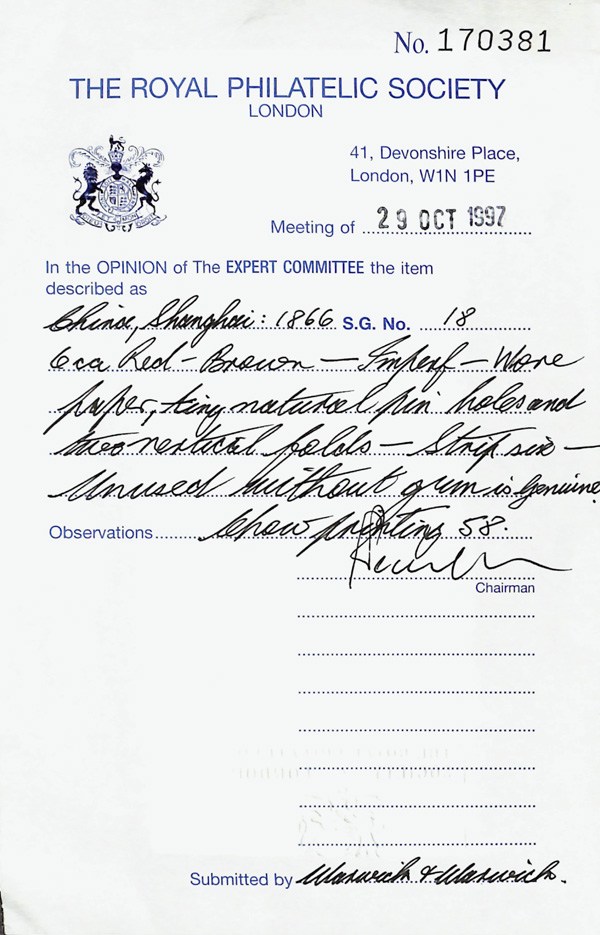 No. 170381
THE ROYAL PHILATELIC SOCIETY
LONDON
41, Devonshire Place,
London, W1N 1PE
Meeting of 29 OCT 1997
In the OPINION of The EXPERT COMMITTEE the item
described as
China, Shanghai: 1866 S.G. No. 18
6ca Red-Brown – Imperf – Wove
paper, tiny natural pin holes and
two vertical folds – Strip six –
Unused without gum is genuine
Observations Chow printing 58.
Chairman
Submitted by Warwick & Warwick.